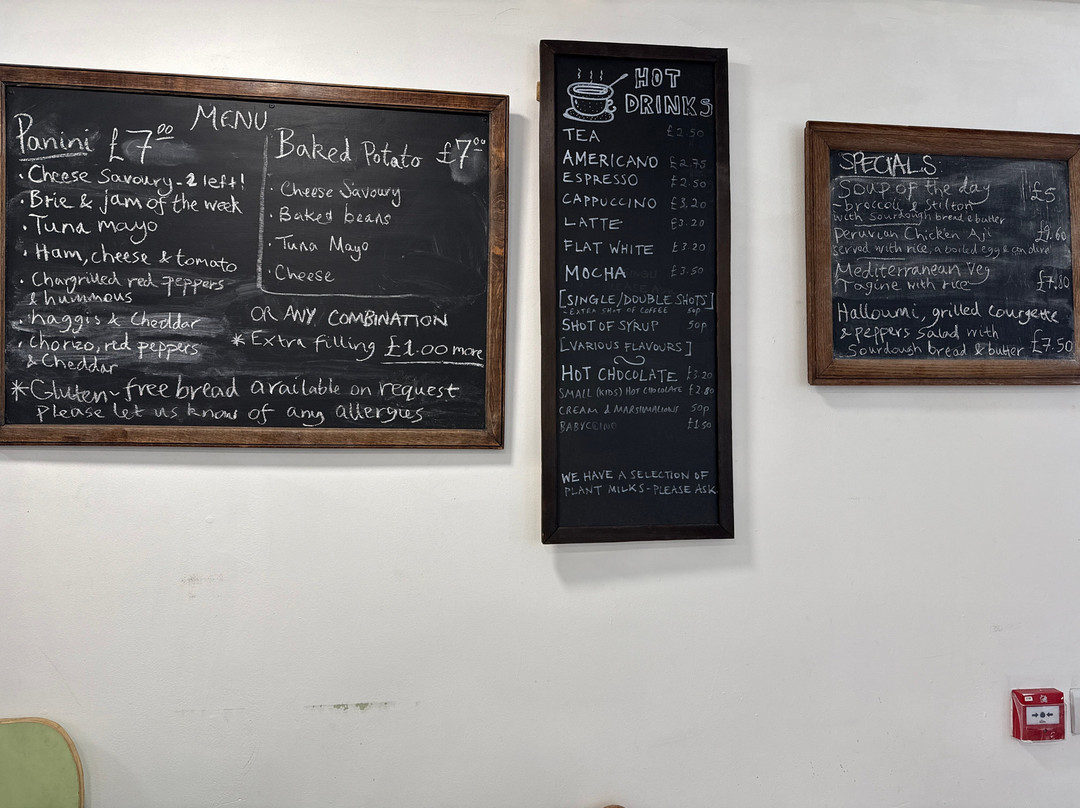 MENU
Panini £7.00
· Cheese Savoury - 2 left!
· Brie & jam of the week
· Tuna mayo
· Ham, cheese & tomato
· Chargrilled red peppers
& hummous
· haggis & Cheddar
· chorizo, red peppers
& Cheddar
Baked Potato £7.00
· Cheese Savoury
· Baked beans
· Tuna Mayo
· Cheese
OR ANY COMBINATION
* Extra filling £1.00 more
* Gluten-free bread available on request
Please let us know of any allergies
HOT
DRINKS
TEA £2.50
AMERICANO £2.75
ESPRESSO £2.50
CAPPUCCINO £3.20
LATTE £3.20
FLAT WHITE £3.20
MOCHA £3.50
[SINGLE/DOUBLE SHOTS]
- EXTRA SHOT OF COFFEE 50p
SHOT OF SYRUP 50p
[VARIOUS FLAVOURS]
HOT CHOCOLATE £3.20
SMALL (KIDS) HOT CHOCOLATE £2.80
CREAM & MARSHMALLOWS 50p
BABYCCINO £1.50
WE HAVE A SELECTION OF
PLANT MILKS - PLEASE ASK
SPECIALS:
Soup of the day £5
- broccoli & Stilton
with Sourdough bread & butter
Peruvian Chicken Aji £9.60
served with rice, a boiled egg &
Mediterranean Veg
Tagine with rice £7.80
Halloumi, grilled courgette
& peppers salad with
Sourdough bread & butter £7.50